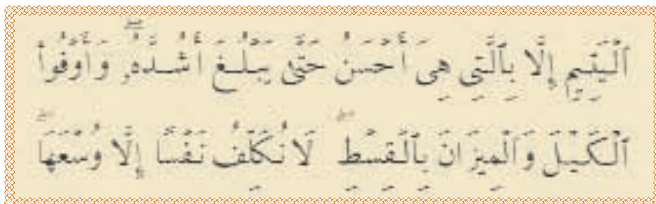 ٱلْيَتِيمِ إِلَّا بِٱلَّتِى هِىَ أَحْسَنُ حَتَّىٰ يَبْلُغَ أَشُدَّهُۥۖ وَأَوْفُوا۟
ٱلْكَيْلَ وَٱلْمِيزَانَ بِٱلْقِسْطِۖ لَا نُكَلِّفُ نَفْسًا إِلَّا وُسْعَهَاۖ